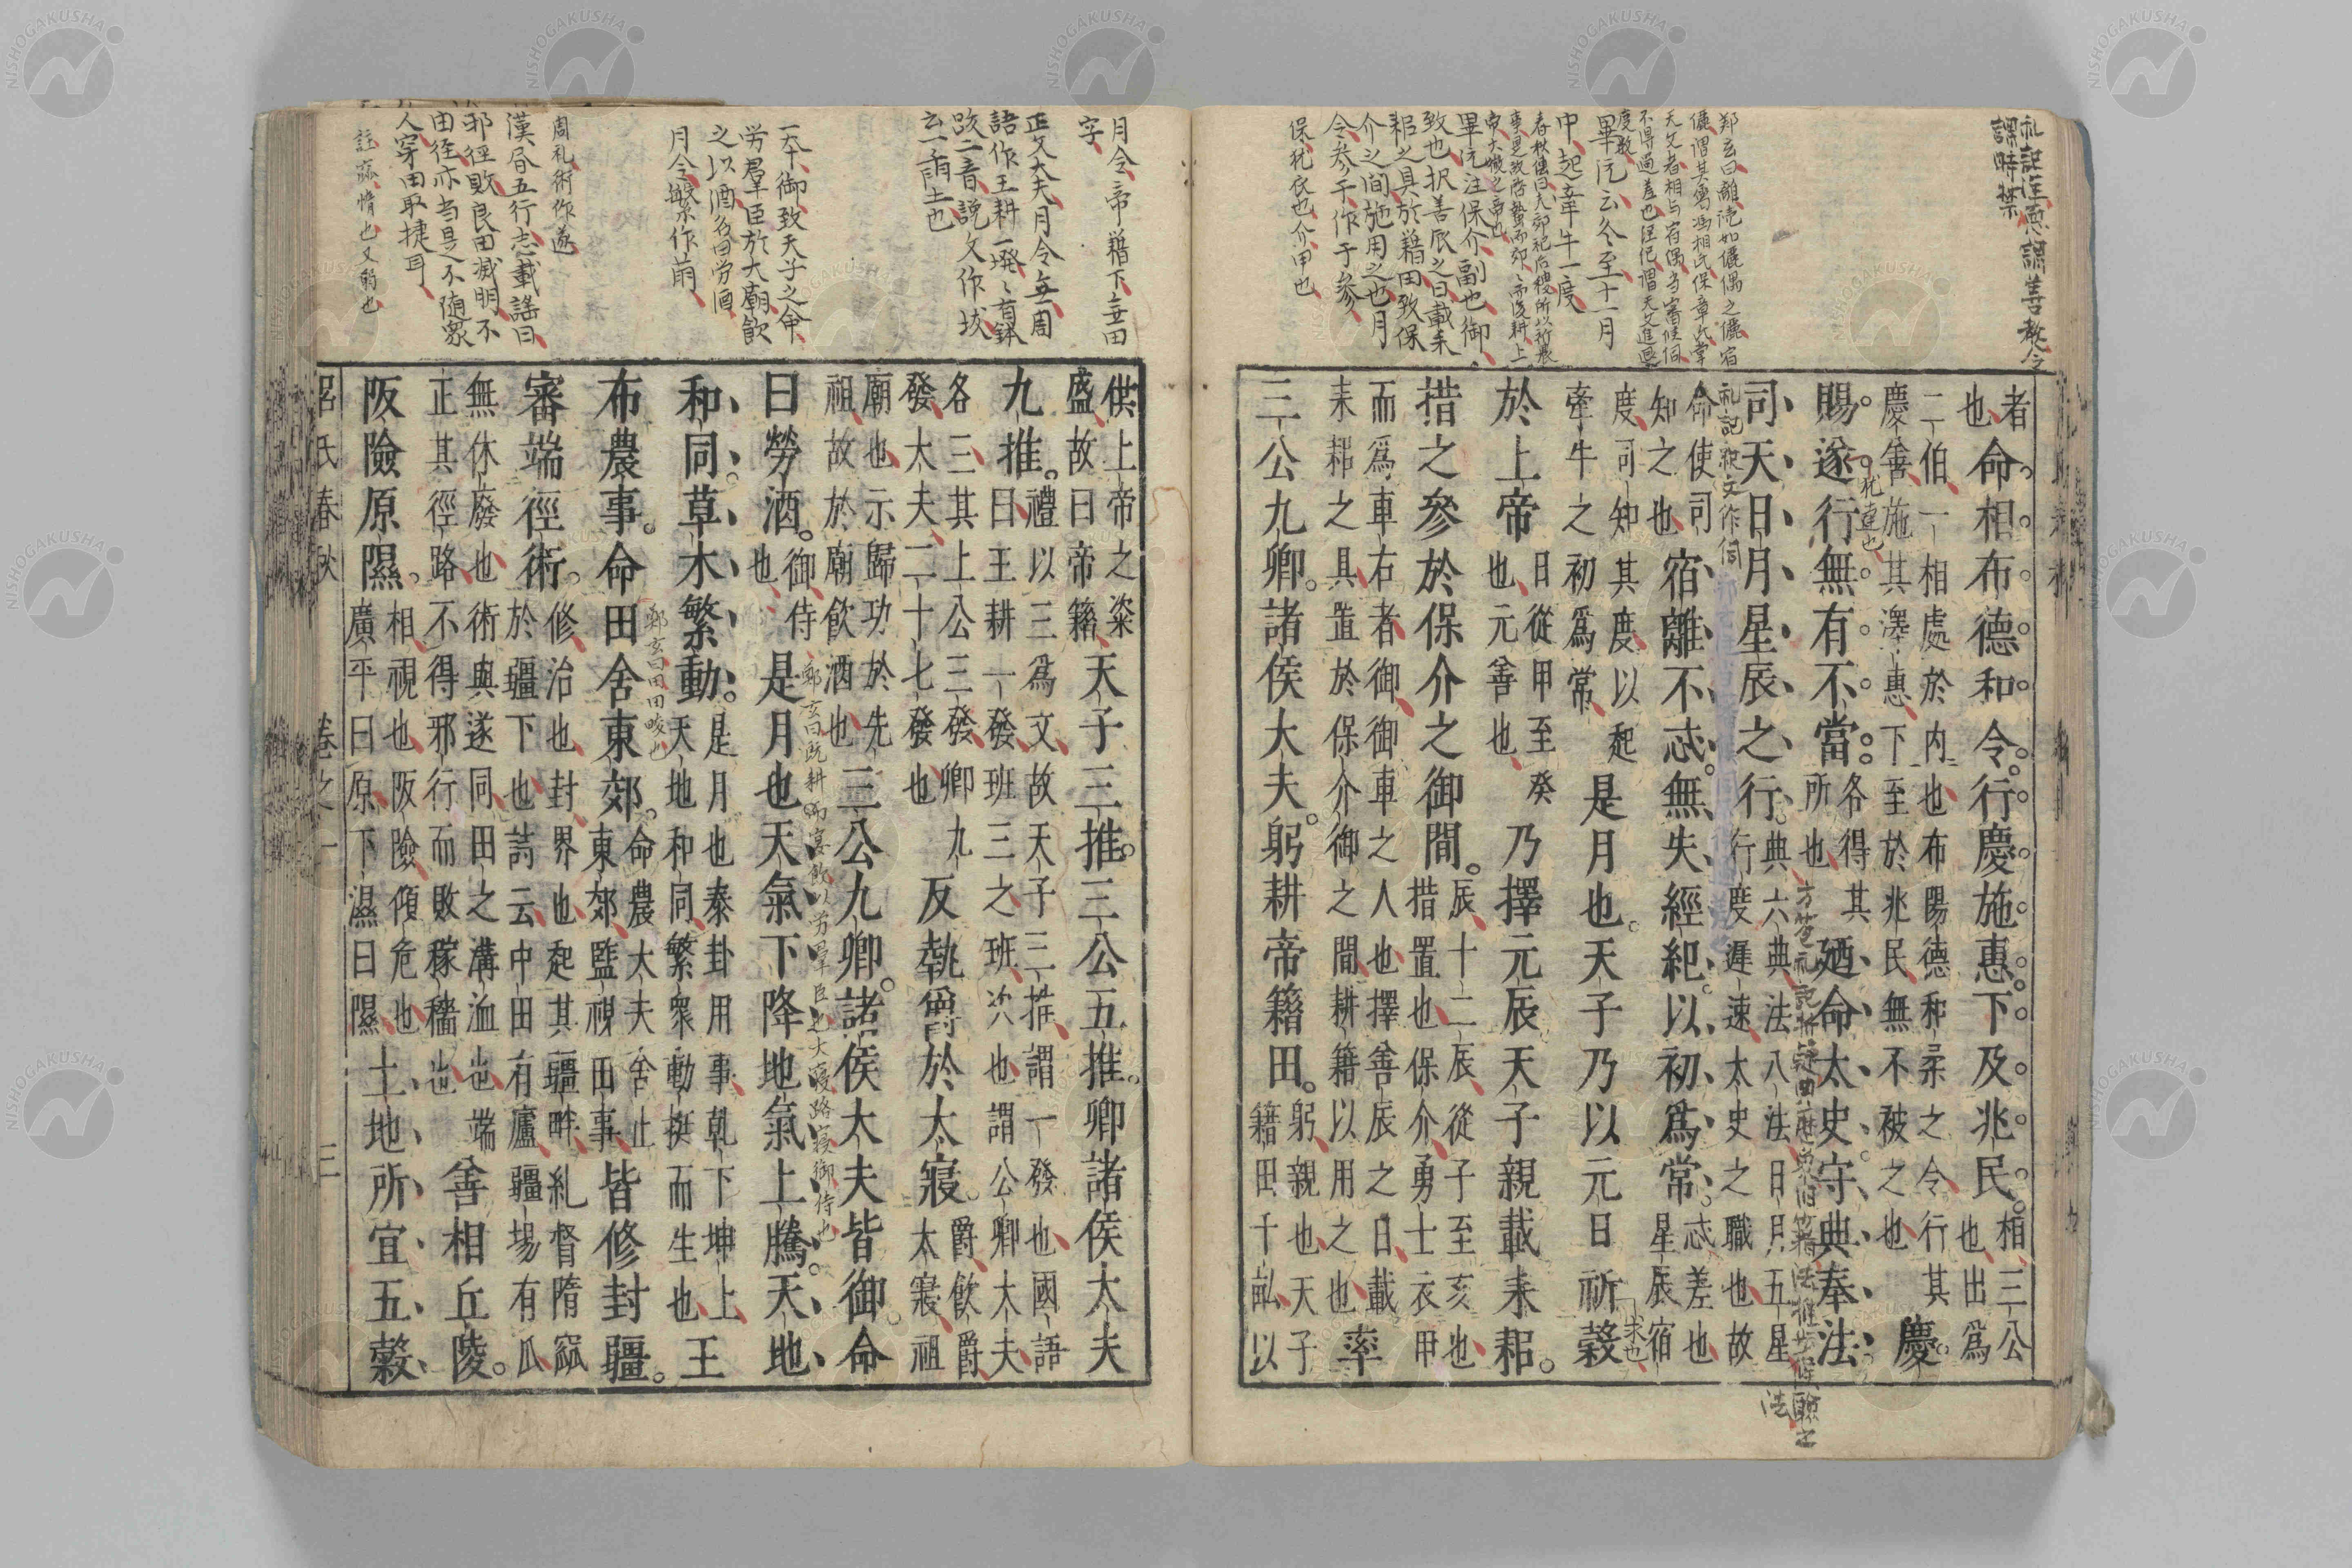 礼記注恵謂善教令
課時禁
鄭玄曰離読如儷偶之儷宿
儷謂其属馮相氏保章氏掌
天文者相与宿偶当審候伺
不得過差也経紀謂天文進退
度数
畢沅云今至十一月
中起牽牛一度
春秋傳曰夫郊祀后稷所以祈農
事是故啓蟄而郊郊而後耕上
帝大微之帝也
畢沅注保介副也御
致也択善辰之日載耒
耜之具於藉田致保
介之间施用之也月
令参于作于参
保犹衣也介甲也
者
也
命相布德和令。行慶施惠。下及兆民。
相三公
也出爲
二伯一相處於内也布陽德和柔之令行其
慶善施其澤惠下至於兆民無不被之也
慶
賜。遂行無有不當。
犹達也
各得其
所也
廼命太史守典奉法
司天日月星辰之行。
典六典法八法日月五星
行度遲速太史之職也故
礼記釈文作伺
命使司
知之也
宿離不忒。無失經紀。以初爲常。
忒差也
星辰宿
度司知其度以起
牽牛之初爲常
是月也。天子乃以元日祈穀
於上帝
日從甲至癸
也元善也
乃擇元辰天子親載耒耜。
措之參於保介之御間。
辰十二辰從子至亥也
措置也保介勇士衣甲
而爲車右者御御車之人也擇善辰之日載
耒耜之具置於保介御之間耕籍以用之也
率
三公九卿。諸侯大夫。躬耕帝籍田。
躬親也天子
籍田千畝以
月令帝藉下無田
字
正文大夫月令無周
語作王耕一墢墢有鉢
跋二音説文作坺
云一臿土也
一本十御致天子之命
労羣臣於大廟飲
之以酒名曰労酒
月令繁作萌
周礼術作遂
漢㫷五行志載謡曰
邪徑敗良田滅明不
由徑亦当是不随衆
人穿田取捷耳
註窳惰也又弱也
供上帝之粢
盛故曰帝籍
天子三推。三公五推。卿諸侯大夫
九推。
禮以三爲文故天子三推謂一發也國語
曰王耕一發班三之班次也謂公卿大夫
各三其上公三發卿九
發大夫二十七發也
反執爵於太寢。
爵飲爵
太寢祖
廟也示歸功於先
祖故於廟飲酒也
三公九卿。諸侯大夫皆御。命
曰勞酒。
御侍
也
鄭玄曰既耕而宴飲以労羣臣也大寝路寝御侍也
是月也天氣下降地氣上騰。天地
和同。草木繁動。
是月也泰卦用事乾下坤上
天地和同繁衆動挺而生也
王
布農事。命田舍東郊。
鄭玄曰田田畯也
命農大夫舍止
東郊監視田事
皆修封疆。
審端徑術。
修治也封界也起其疆畔糺督隋窳
於疆下也詩云中田有廬疆場有瓜
無休廢也術與遂同田之溝洫也端
正其徑路不得邪行而敗稼穡也
善相丘陵。
阪險原隰。
相視也阪險傾危也
廣平曰原下濕曰隰
土地所宜五穀
呂氏春秋 卷之一 三